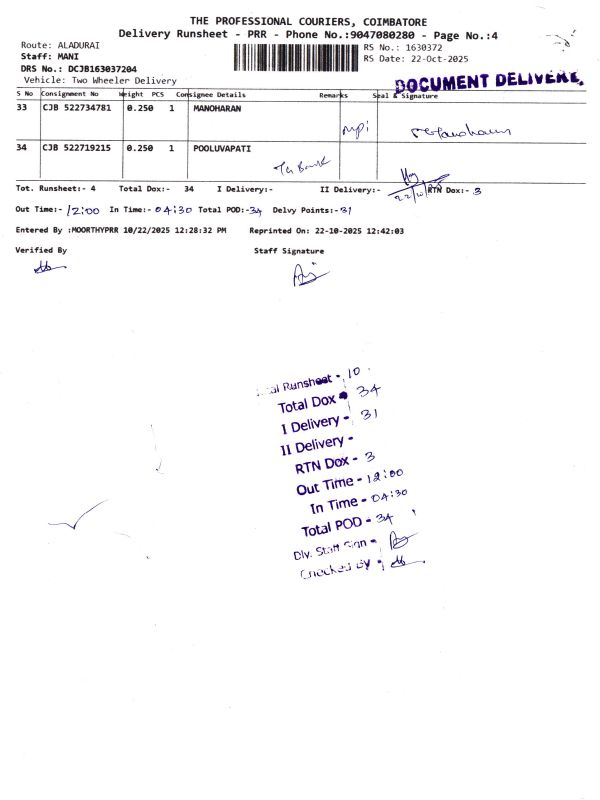 THE PROFESSIONAL COURIERS, COIMBATORE
Delivery Runsheet - PRR - Phone No.:9047080280 - Page No.:4
Route: ALADURAI
Staff: MANI
DRS No.: DCJB163037204
Vehicle: Two Wheeler Delivery
RS No.: 1630372
RS Date: 22-Oct-2025
DOCUMENT DELIVERE.
S No Consignment No Weight PCS Consignee Details Remarks Seal & Signature
33 CJB 522734781 0.250 1 MANOHARAN
34 CJB 522719215 0.250 1 POOLUVAPATI
Tot. Runsheet:- 4 Total Dox:- 34 I Delivery:- II Delivery:- RTN Dox:- 3
Out Time:- 12:00 In Time:- 04:30 Total POD:-34 Delvy Points:-31
Entered By :MOORTHYPRR 10/22/2025 12:28:32 PM Reprinted On: 22-10-2025 12:42:03
Verified By Staff Signature
Runsheet - 10
Total Dox 34
I Delivery - 31
II Delivery -
RTN Dox - 3
Out Time - 12:00
In Time - 04:30
Total POD - 34
Dlv. Staff Sign -
Checked By -